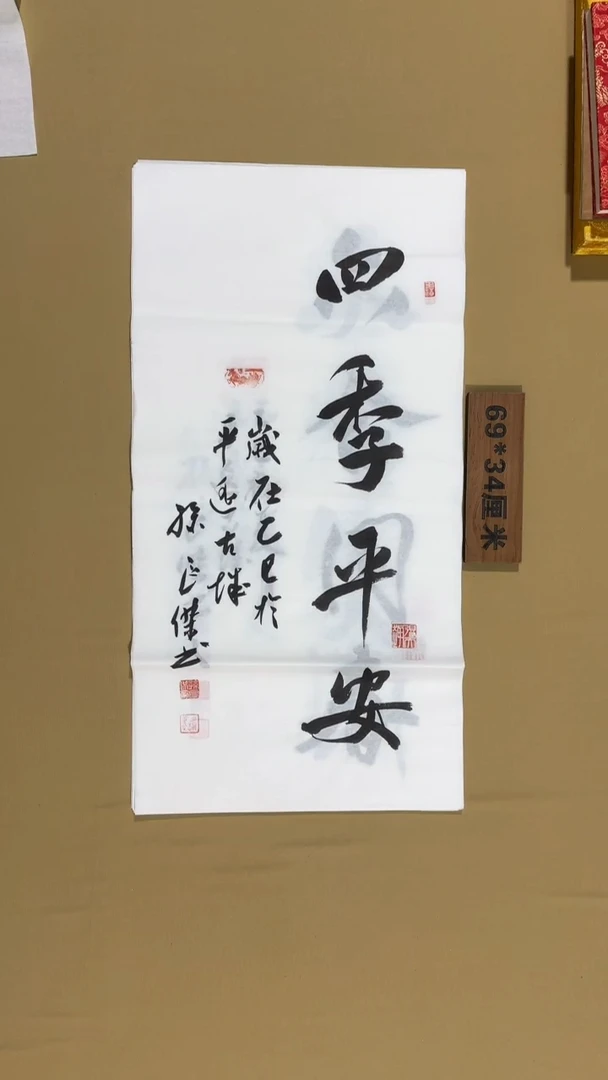 四季平安
歲在乙巳於
平遙古城
孫良傑書
69*34厘米